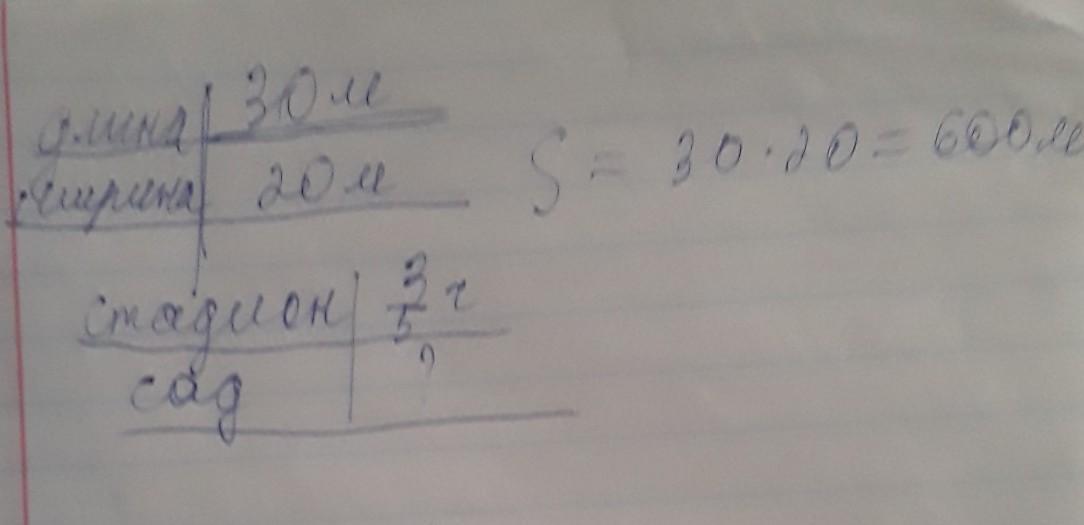 длина 30 м
ширина 20 м
S = 30 · 20 = 600 м
стадион 3/5 г
сад ?